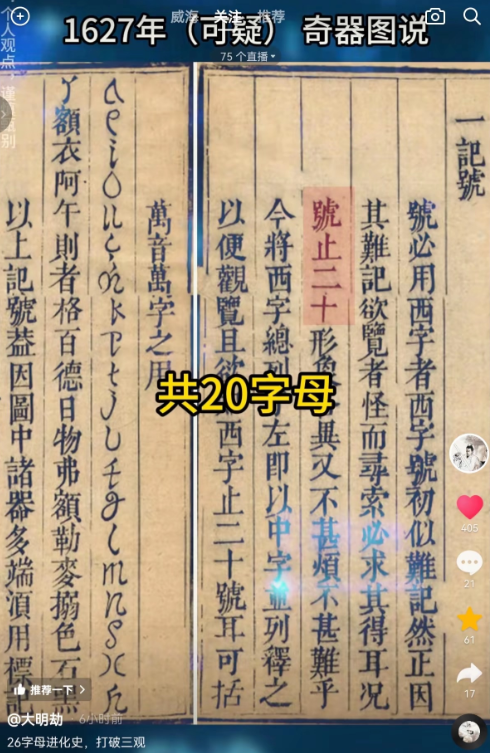 威海
关注
推荐
1627年（可疑） 奇器图说
75 个直播
一記號
號必用西字者西字號初似難記然正因
其難記欲覽者怪而尋索必求其得耳况
號止二十形
異又不甚煩不甚難乎
今將西字總列
左即以中字並列釋之
以便觀覽且欲
西字止二十號耳可括
萬音萬字之用
a e i o u c
k p t j l f d g l m n s
丫額衣阿午則者格百德日物弗額勒麥搦色石黑
以上記號葢因圖中諸器多端湏用標記
共20字母
405
21
61
17
推荐一下
@大明劫 6小时前
26字母进化史，打破三观